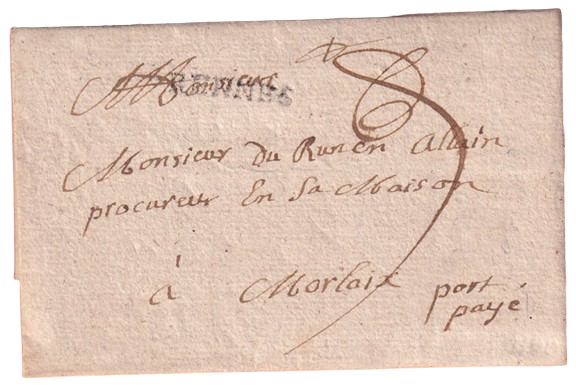 Monsieur
RENNES
Monsieur Du Runen Allain
procureur En Sa Maison
à Morlaix port
payé